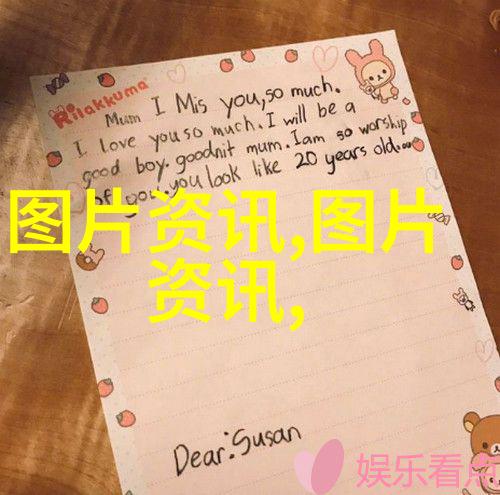 Rilakkuma
Mum I Mis you,so much.
I love you so much.I will be a
good boy.goodnit mum.Iam so worship
of you.you look like 20 years old.
图片资讯,图片
资讯,
Dear:Susan
娱乐看点